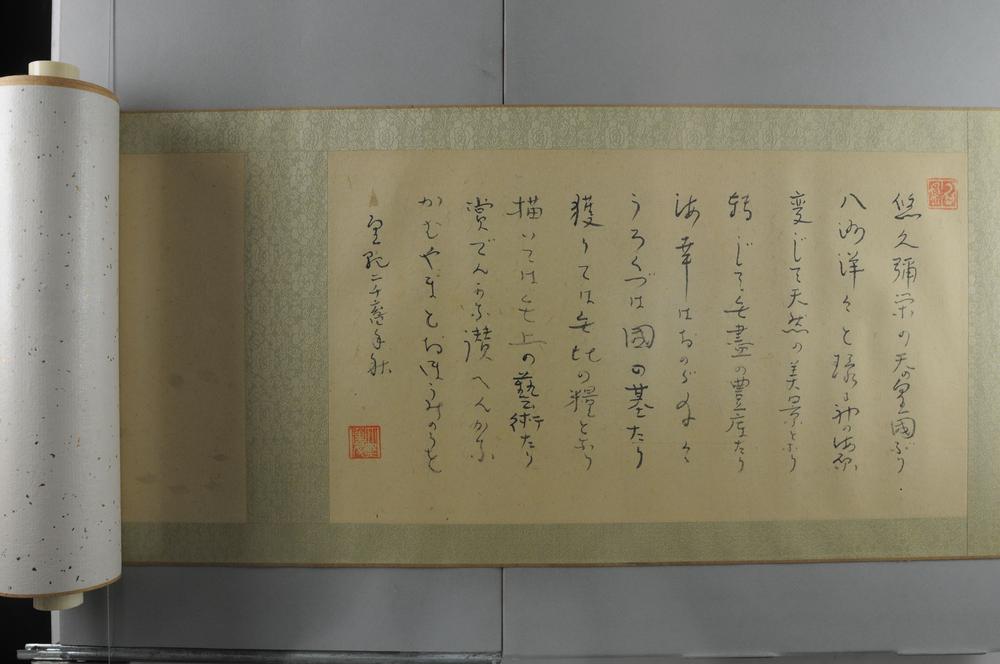 悠久彌栄の天の皇國ぶり
八洲洋々と環る神の海原
変じて天然の美景となり
転じて無盡の豊庫たり
海幸はおのがみゝ々
うろくづは國の基たり
獲りては無比の糧となり
描いては無上の藝術たり
賞でんかな讃へんかな
かむやまとおほうみのうを
皇紀二千六百年秋